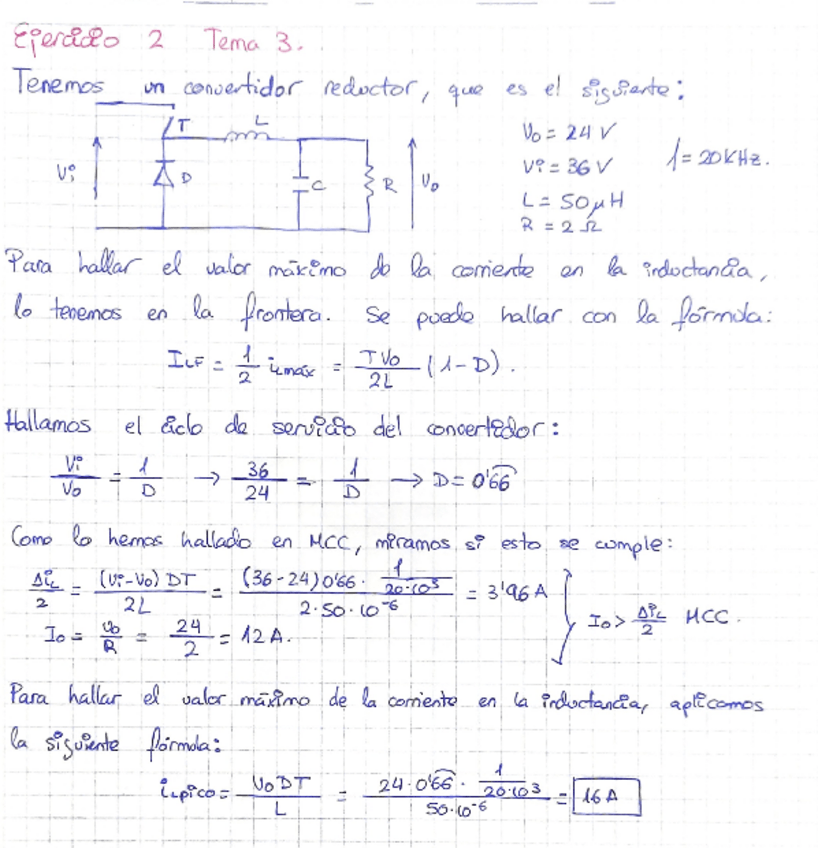 Ejercicio 2 Tema 3.
Tenemos un convertidor reductor, que es el siguiente:
T L
Vi D C R Vo
Vo = 24 V
Vi = 36 V f = 20 KHz.
L = 50 μH
R = 2 Ω
Para hallar el valor máximo de la corriente en la inductancia,
lo tenemos en la frontera. Se puede hallar con la fórmula:
ILF = 1/2 iLmáx = TVo/2L (1-D).
Hallamos el ciclo de servicio del convertidor:
Vi/Vo = 1/D → 36/24 = 1/D → D = 0'66
Como lo hemos hallado en MCC, miramos si esto se cumple:
ΔiL/2 = (Vi-Vo) DT/2L = (36-24) 0'66 · 1/20·10³ / 2·50·10⁻⁶ = 3'96 A
Io = Vo/R = 24/2 = 12 A.
Io > ΔiL/2 MCC.
Para hallar el valor máximo de la corriente en la inductancia, aplicamos
la siguiente fórmula:
iLpico = VoDT/L = 24·0'66 · 1/20·10³ / 50·10⁻⁶ = 16 A